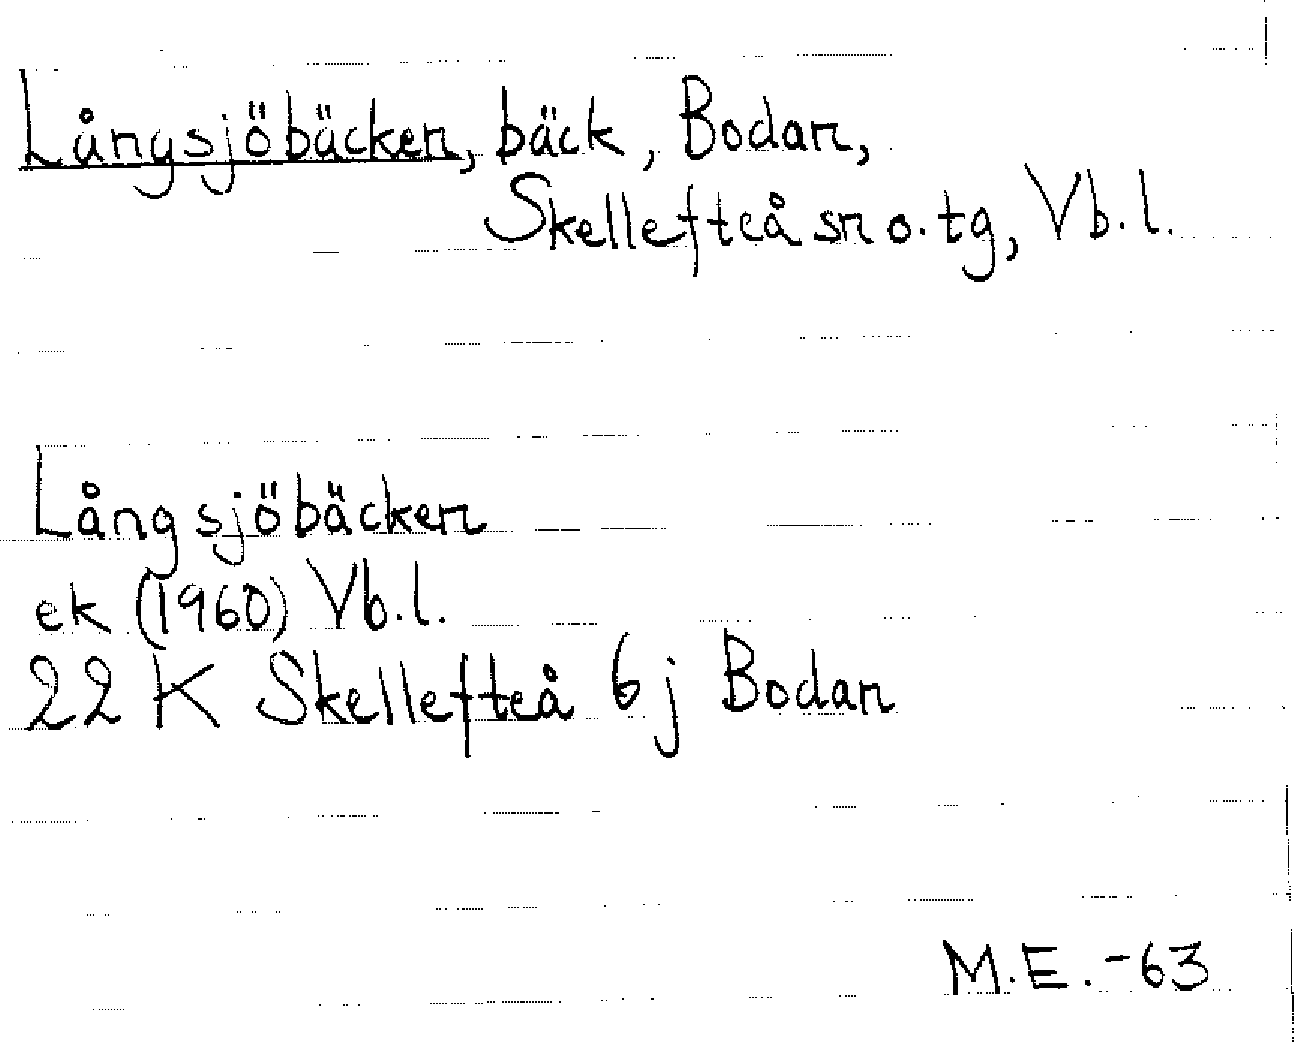 Långsjöbäcken, bäck, Bodan,
Skellefteå sn o. tg, Vb. l.
Långsjöbäcken
ek (1960) Vb. l.
22 K Skellefteå 6 j Bodan
M.E. -63